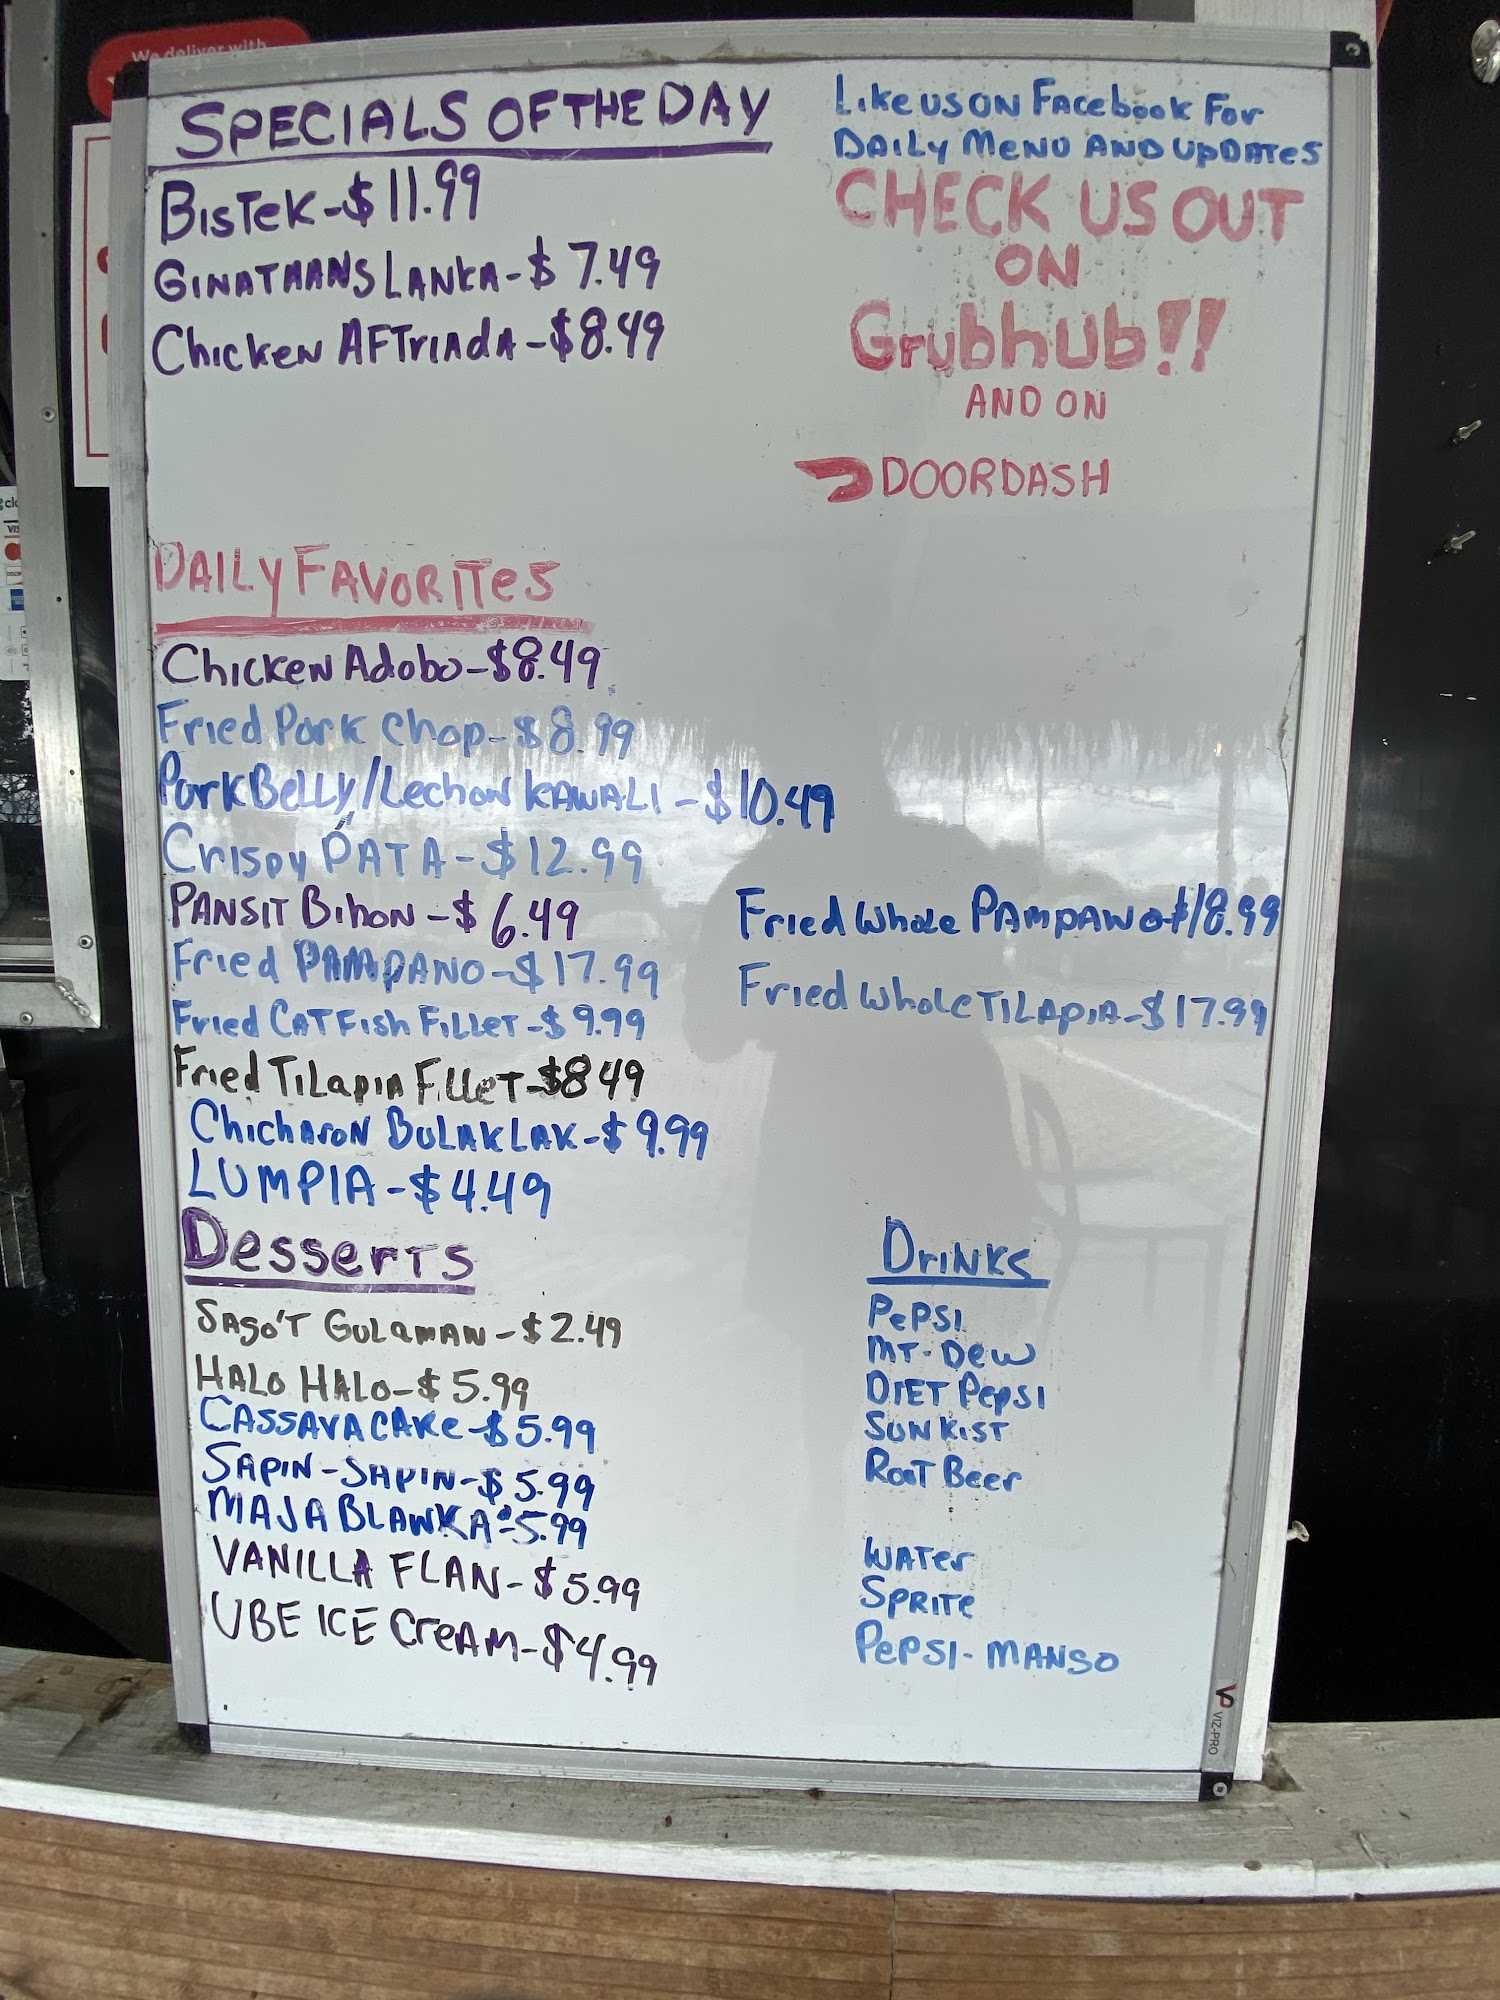 We deliver with
SPECIALS OF THE DAY
BisTeK-$11.99
GINATAANSLANKA-$7.49
Chicken AFTriAdA-$8.49
Like us on Facebook For
DAILY MENU AND UpDATes
CHECK US OUT
ON
Grubhub!!
AND ON
DOORDASH
DAILY FAVORITes
Chicken Adobo-$8.49
Fried Pork Chop-$8.99
Pork Belly/Lechon KAWALI-$10.49
Crispy PATA-$12.99
PANSIT Bihon-$6.49
Fried PAMPANO-$17.99
Fried CATFish FiLLeT-$9.99
Fried TiLapiA FilleT-$8.49
Chicharon BuLAKLAK-$9.99
LUMPIA-$4.49
Fried Whole PAMPANO-$18.99
Fried Whole TILAPIA-$17.99
Desserts
Sago'T GulamAN-$2.49
HALO HALO-$5.99
CASSAVA CAKe-$5.99
SAPIN-SAPIN-$5.99
MAJA BLANKA-$5.99
VANILLA FLAN-$5.99
UBE ICE CreAM-$4.99
DriNKS
PePSI
MT-Dew
DIET Pepsi
SUNKIST
RooT Beer
WATer
SPRITe
PePSI-MANSO
VIZ-PRO